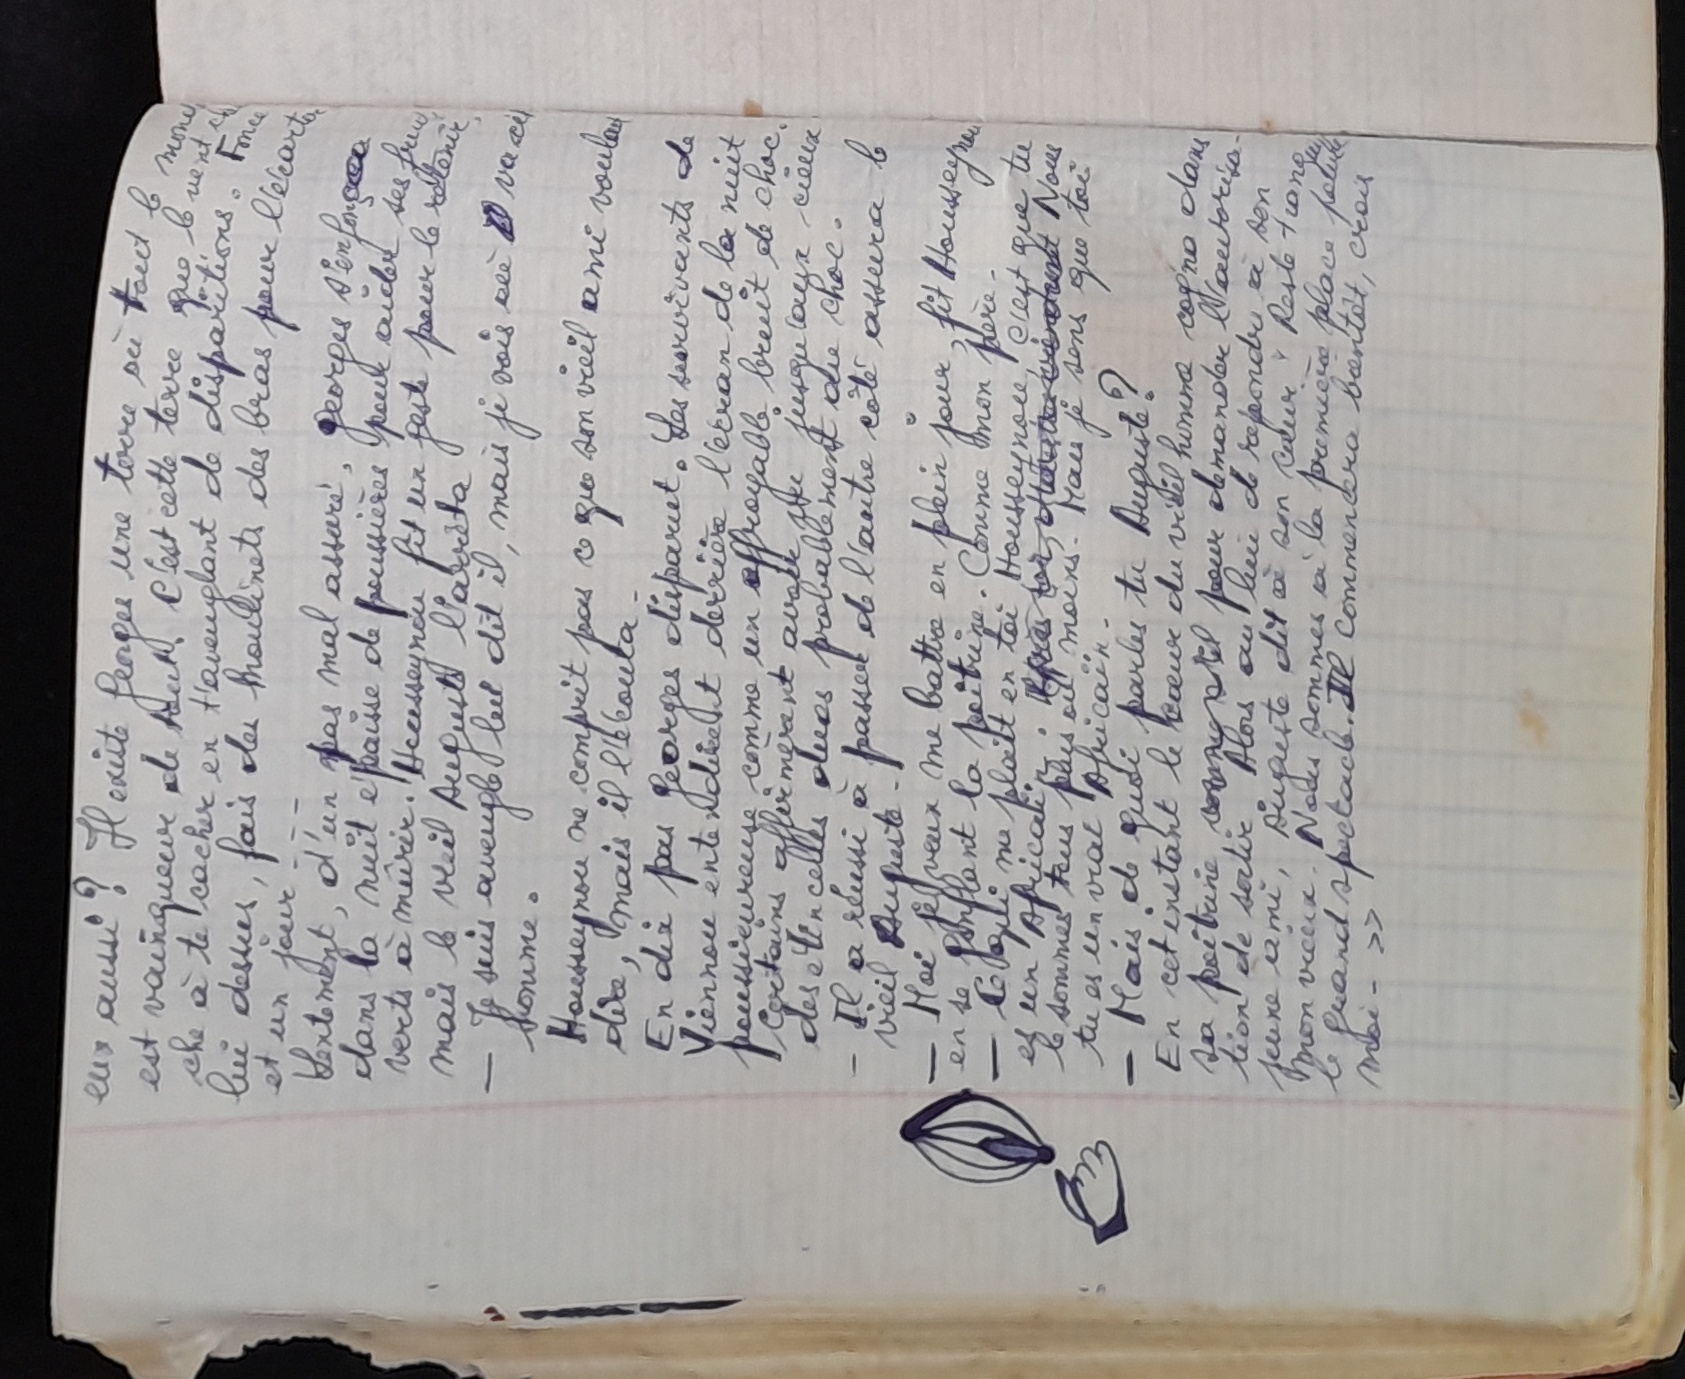 eux aussi ? Il existe Georges une terre où tout le mone
est vainqueur de tout. C'est cette terre que le vent ch
che à te cacher en t'aveuglant de disparitions. Fonce
lui dessus, fais des moulinets des bras pour l'écarte
et un jour - - -
Lentement, d'un pas mal assuré, Georges s'enfonça
dans la nuit épaisse de poussières pour aider ses frui
verts à mûrir. Housseynou fit un geste pour le retenir,
mais le vieil Auguste l'arrêta
— Je suis aveugle lui dit il, mais je vois où va cet
homme.
Housseynou ne comprit pas ce que son vieil ami voulait
dire, mais il l'écouta.
En dix pas Georges disparut. Les survivants de
Vienne entendirent derrière l'écran de la nuit
poussiéreuse comme un effroyable bruit de choc.
Certains affirmèrent avoir vu jusqu'aux cieux
des étincelles dues probablement au choc.
- Il a réussi à passer de l'autre côté assura le
vieil Auguste -
— Moi je veux me battre en plein jour, fit Housseynou
en se gonflant la poitrine. Comme mon père.
— Ce qui me plaît en toi Housseynou, c'est que tu
es un Africain. Nous
le sommes tous plus ou moins. Mais je sens que toi
tu es un vrai Africain.
— Mais de quoi parles tu Auguste ?
En cet instant le coeur du vieil homme cogna dans
sa poitrine pour demander l'autorisa-
tion de sortir. Alors au lieu de répondre à son
jeune ami, Auguste dit à son coeur : Reste tranq
mon vieux. Nous sommes à la première place pour
le grand spectacle. Il commencera bientôt, crois
moi - >>